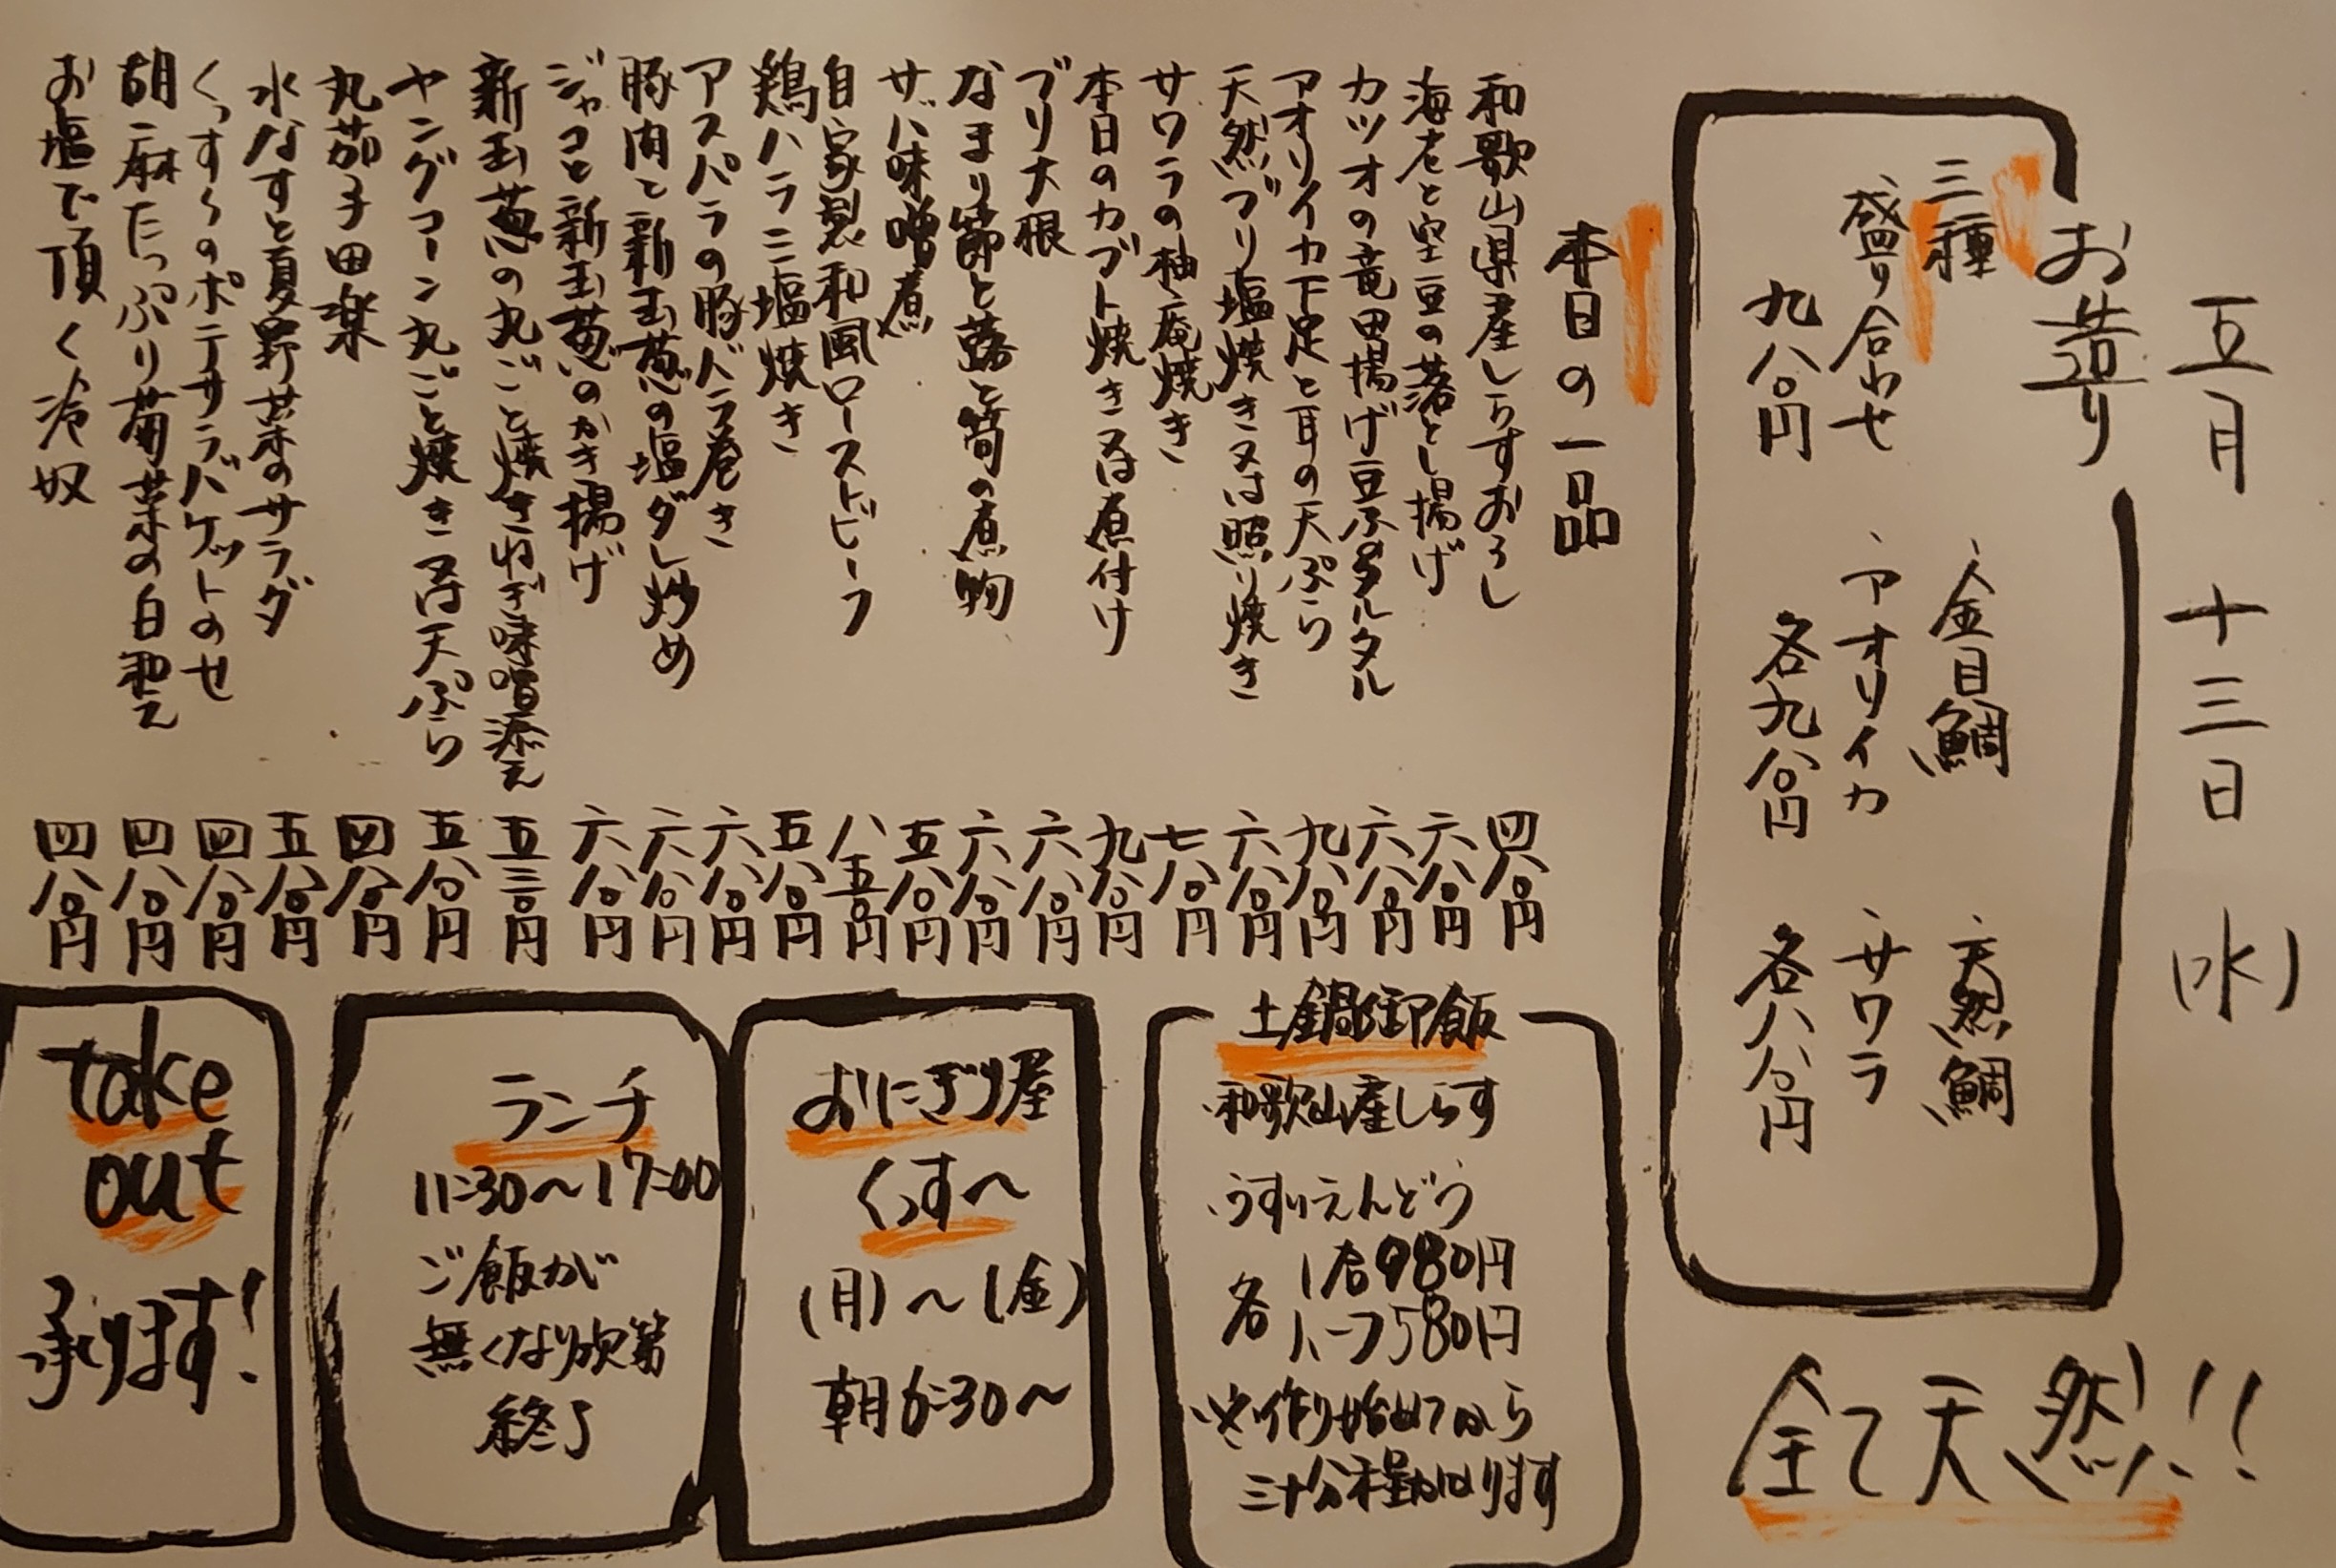 五月 十三日 (水)
お造り
三種
盛り合わせ
九八〇円
、金目鯛
、アオリイカ
各九八〇円
、天然鯛
、サワラ
各八八〇円
全て天然!!
本日の一品
和歌山県産しらすおろし 四八〇円
海老と空豆の落とし揚げ 六八〇円
カツオの竜田揚げ豆ふタルタル 六八〇円
アオリイカ下足と耳の天ぷら 九八〇円
天然ブリ塩焼き又は照り焼き 六八〇円
サワラの柚庵焼き 七八〇円
本日のカブト焼き又は煮付け 九八〇円
ブリ大根 六八〇円
なまり節と蕗と筍の煮物 六八〇円
サバ味噌煮 五八〇円
自家製和風ローストビーフ 八五〇円
鶏ハラミ塩焼き 五八〇円
アスパラの豚バラ巻き 六八〇円
豚肉と新玉葱の塩ダレ炒め 六八〇円
ジャコと新玉葱のかき揚げ 六八〇円
新玉葱の丸ごと焼きねぎ味噌添え 五三〇円
ヤングコーン丸ごと焼き又は天ぷら 五八〇円
丸茄子田楽 四八〇円
水なすと夏野菜のサラダ 五八〇円
くっす〜のポテサラバケットのせ 四八〇円
胡麻たっぷり菊菜の白和え 四八〇円
お塩で頂く冷奴 四八〇円
土鍋御飯
・和歌山産しらす
・うすいえんどう
各 1合980円
ハーフ580円
※作り始めてから
三十分程かかります
おにぎり屋
くっす〜
(月)〜(金)
朝6:30〜
ランチ
11:30〜17:00
ご飯が
無くなり次第
終了
take
out
承ります!